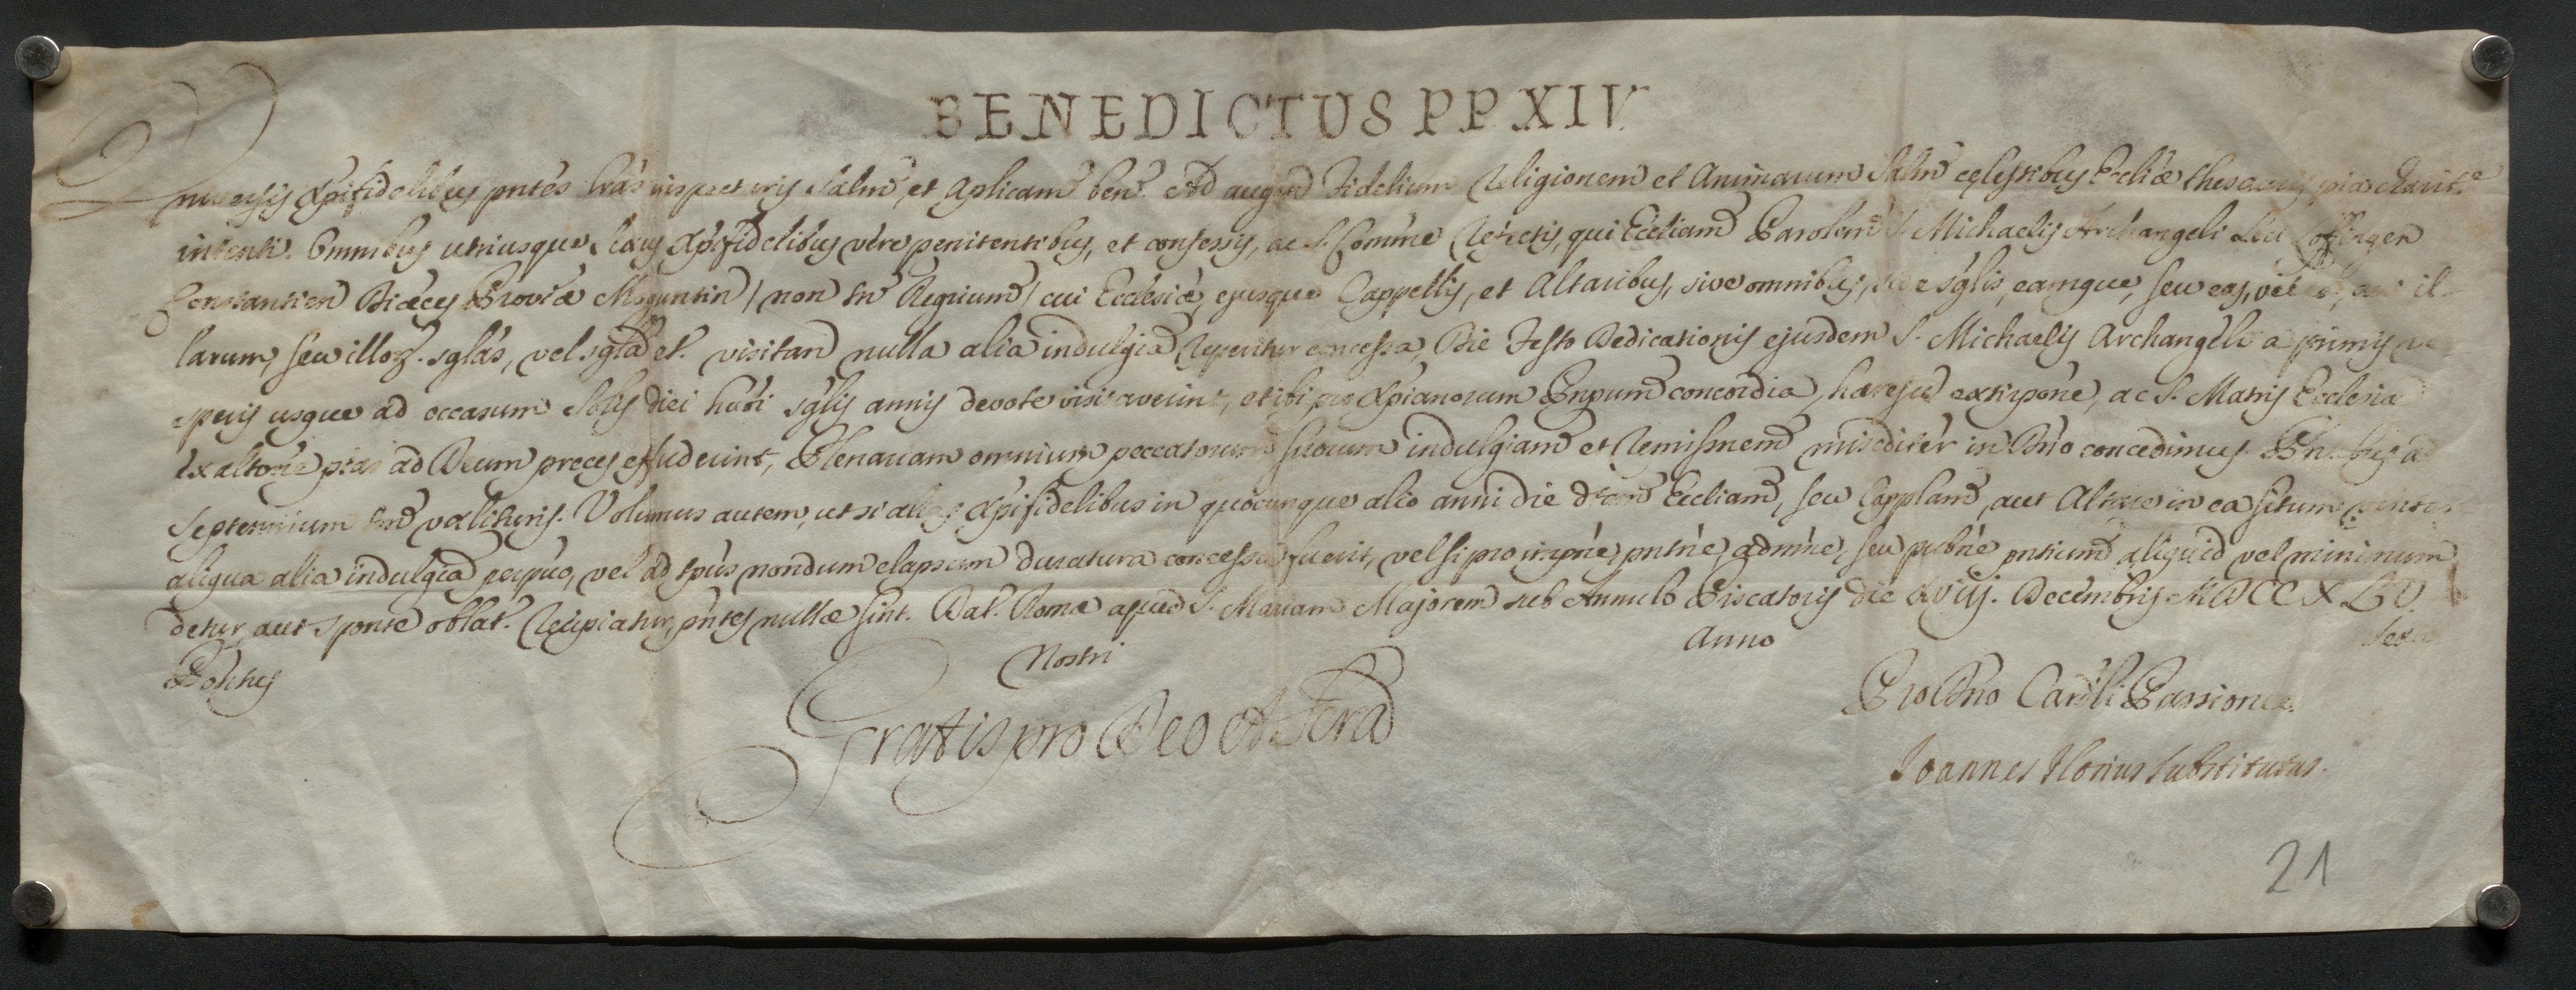 BENEDICTUS P P XIV
Universis Xpifidelibus pntes Lras inspecturis Salm et aplicam ben. Ad augend fidelium Religionem et Animarum Salm celestibus Eccliæ thesauris pia charit.e
intenti. Omnibus utriusque sexus Xpifidelibus vere penitentibus, et confessis, ac S. Comme refectis, qui Eccliam Parolem S. Michaelis Archangeli Loci Loffingen
Constantien Diæces Provæ Moguntin / non tn Regium / cui Ecclesiæ, ejusque Cappellis, et Altaribus, sive omnibus, sive sglis, eamque, seu eas, vel ea, aut il-
larum, seu illoꝝ. sglas, vel sgla et. visitan nulla alia indulgia reperitur concessa, Die Festo Dedicationis ejusdem S. Michaelis Archangeli a primis ve-
speris usque ad occasum Solis diei huoi sglis annis devote visitaverint, et ibi pro Xpianorum Pnpum concordia, hæresu extirpone, ac S. Matris Ecclesiæ
exaltone pias ad Deum preces effuderint, Plenariam omnium peccatorum suorum indulgiam et remissnem misediter in Dno concedimus. Pntibus ad
Septennium tm valituris. Volumus autem, ut si alias Xpifidelibus in quocunque alio anni die dictam Eccliam, seu Capplam, aut Altare in ea situm
aliqua alia indulgia perpuo, vel ad tpus nondum elapsum duratura concessa fuerit, vel si pro impne, pntne, admne, seu pubne pntium aliquid vel minimum
detur, aut sponte oblat. recipiatur, pntes nullæ sint. Dat. Romæ apud S. Mariam Majorem sub Annulo Piscatoris die XViij. Decembris MDCCXLV.
Pontus Nostri Anno Sexto
Gratis pro Deo et Scra
Pro Dno Cardli Passioneo
Joannes Florius Substitutus.
21